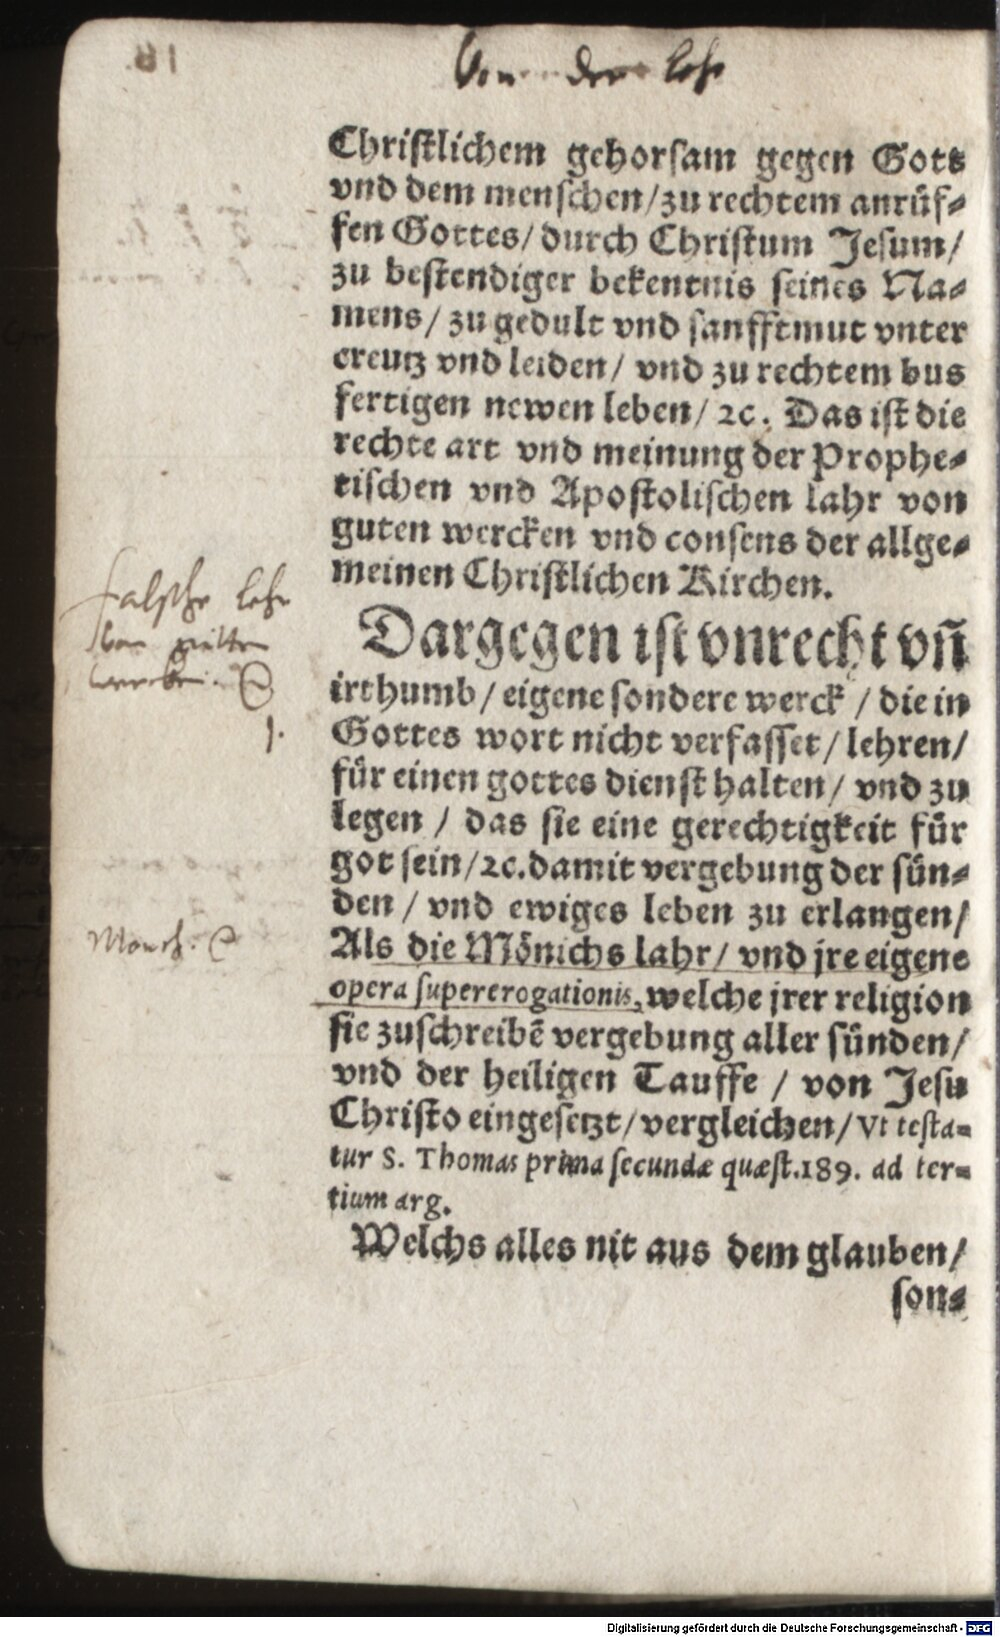 Von der lehr
Christlichem gehorsam gegen Gott
vnd dem menschen/zu rechtem anrüf-
fen Gottes/durch Christum Jesum/
zu bestendiger bekentnis seines Na-
mens/zu gedult vnd sanfftmut vnter
creutz vnd leiden/ vnd zu rechtem bus
fertigen newen leben/ ꝛc. Das ist die
rechte art vnd meinung der Prophe-
tischen vnd Apostolischen lahr von
guten wercken vnd consens der allge-
meinen Christlichen Kirchen.
falsche lehr
von gutten
wercken.
1.
Dargegen ist vnrecht vñ
irthumb/eigene sondere werck / die in
Gottes wort nicht verfasset/lehren/
für einen gottes dienst halten/ vnd zu
legen / das sie eine gerechtigkeit für
got sein/ꝛc.damit vergebung der sün-
den/ vnd ewiges leben zu erlangen/
Monch.
Als die Mönichs lahr/ vnd jre eigene
opera supererogationis, welche jrer religion
sie zuschreibẽ vergebung aller sünden/
vnd der heiligen Tauffe / von Jesu
Christo eingesetzt/vergleichen/Vt testa-
tur S. Thomas prima secundæ quæst.189. ad ter-
tium arg.
Welchs alles nit aus dem glauben/
son-
Digitalisierung gefördert durch die Deutsche Forschungsgemeinschaft - DFG